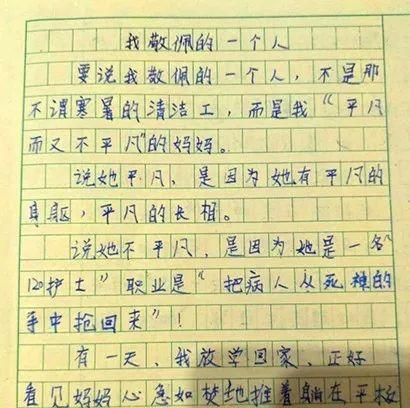 我敬佩的一个人
要说我敬佩的一个人，不是那
不谓寒暑的清洁工，而是我“平凡
而又不平凡”的妈妈。
说她平凡，是因为她有平凡的
身躯，平凡的长相。
说她不平凡，是因为她是一名
120护士”职业是“把病人从死神的
手中抢回来”！
有一天，我放学回家、正好
看见妈妈心急如焚地推着躺在平板